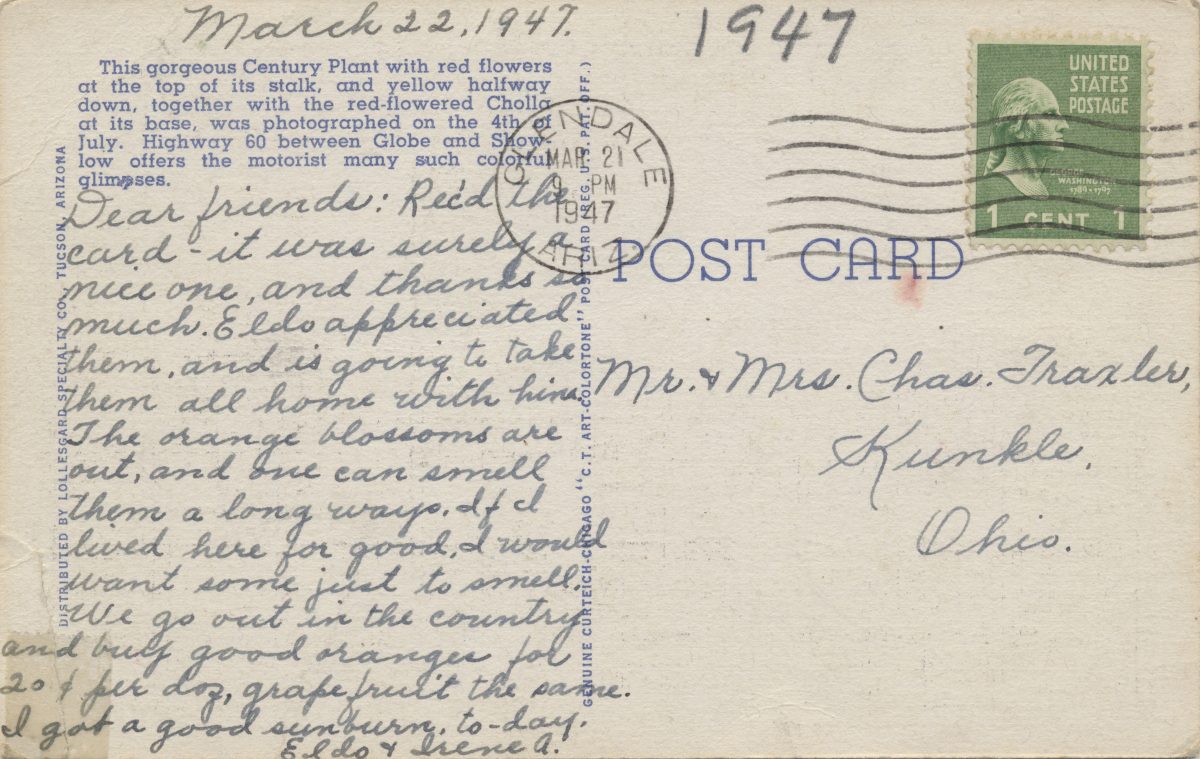 March 22, 1947.
1947
This gorgeous Century Plant with red flowers
at the top of its stalk, and yellow halfway
down, together with the red-flowered Cholla
at its base, was photographed on the 4th of
July. Highway 60 between Globe and Show-
low offers the motorist many such colorful
glimpses.
DISTRIBUTED BY LOLLESGARD SPECIALTY CO., TUCSON, ARIZONA
Dear friends: Rec'd the
card - it was surely a
nice one, and thanks so
much. Eldo appreciated
them, and is going to take
them all home with him.
The orange blossoms are
out, and one can smell
them a long ways. If I
lived here for good, I would
want some just to smell.
We go out in the country
and buy good oranges for
20 ¢ per doz, grapefruit the same.
I got a good sunburn, to-day.
Eldo & Irene A.
GENUINE CURTEICH-CHICAGO "C.T. ART-COLORTONE" POST CARD (REG. U.S. PAT. OFF.)
GLENDALE
MAR 21
9 PM
1947
ARIZ
UNITED
STATES
POSTAGE
GEORGE
WASHINGTON
1789-1797
1 CENT 1
POST CARD
Mr. & Mrs. Chas. Traxler,
Kunkle,
Ohio.